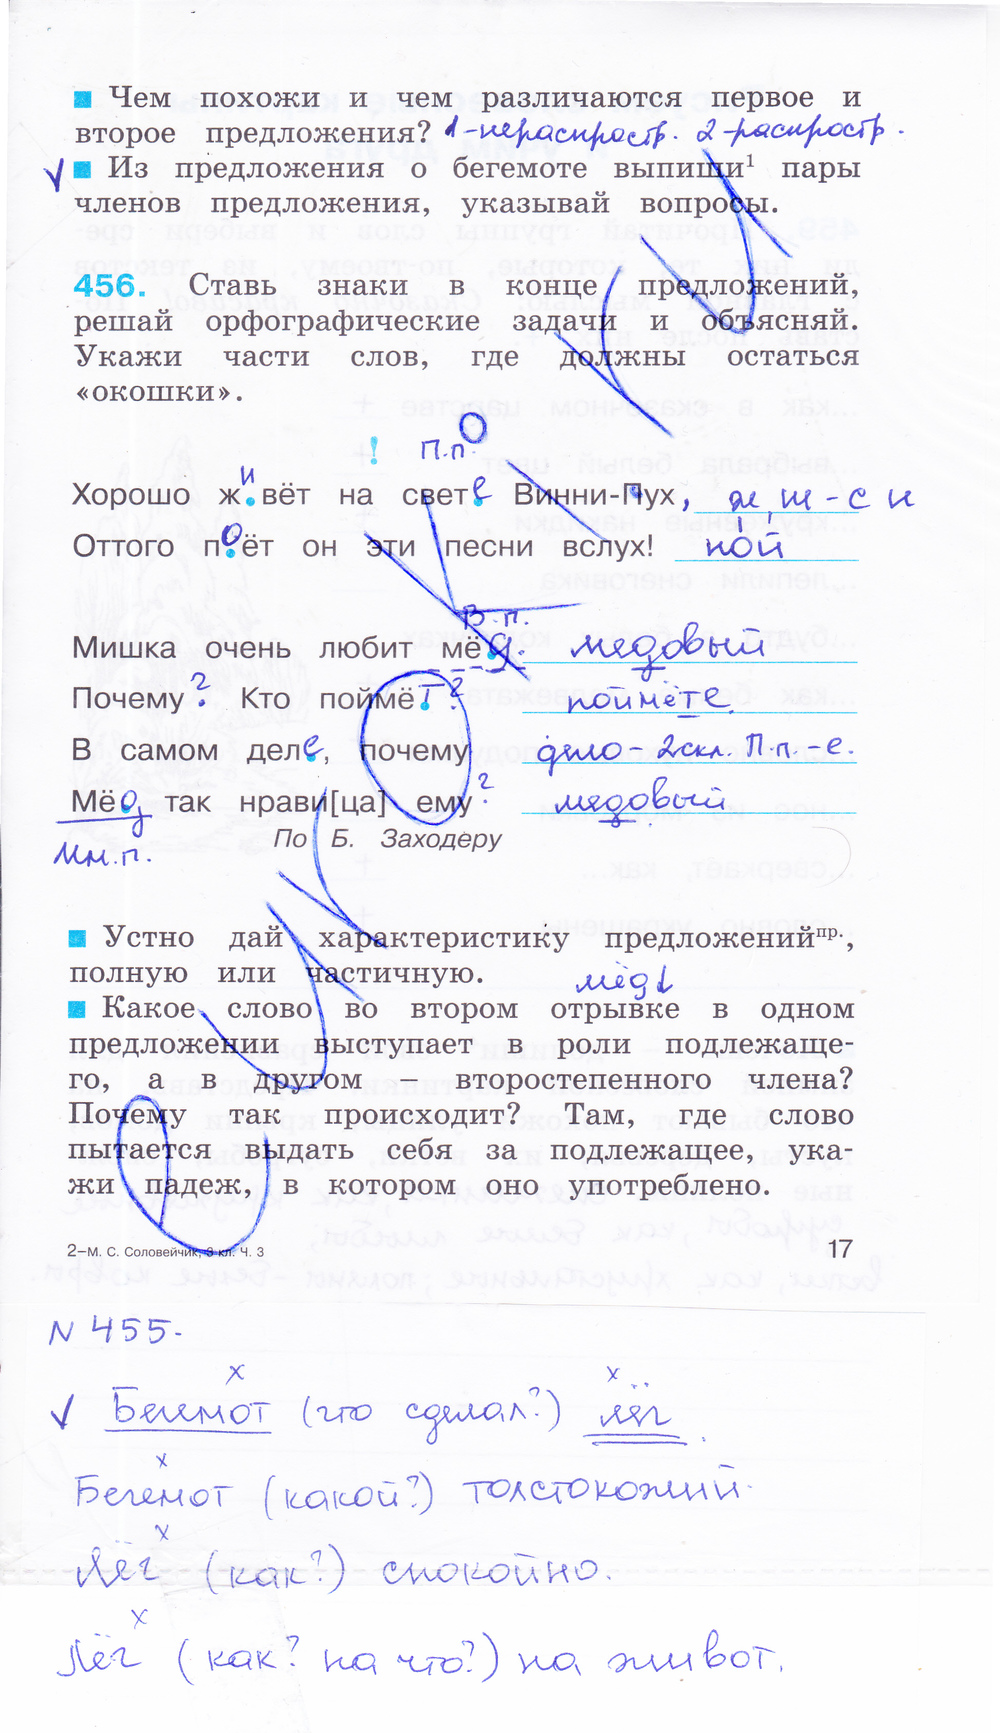 ■ Чем похожи и чем различаются первое и
второе предложения? 1-нераспростр. 2-распростр.
√ ■ Из предложения о бегемоте выпиши¹ пары
членов предложения, указывай вопросы.
456. Ставь знаки в конце предложений,
решай орфографические задачи и объясняй.
Укажи части слов, где должны остаться
«окошки».
! П.п
Хорошо живёт на свете Винни-Пух, ж, ш - с и
Оттого поёт он эти песни вслух! по́й
В.п.
Мишка очень любит мёд. медовый
Почему? Кто поймёт? поймёте.
В самом деле, почему дело - 2скл. П.п-е.
Мёд так нрави[ца] ему? медовый
Им.п. По Б. Заходеру
■ Устно дай характеристику предложенийпр.,
полную или частичную. мёд
■ Какое слово во втором отрывке в одном
предложении выступает в роли подлежаще-
го, а в другом – второстепенного члена?
Почему так происходит? Там, где слово
пытается выдать себя за подлежащее, ука-
жи падеж, в котором оно употреблено.
2–М. С. Соловейчик, 3 кл. Ч. 3 17
N 455.
√ Бегемот (что сделал?) лёг.
Бегемот (какой?) толстокожий.
Лёг (как?) спокойно.
Лёг (как? на что?) на живот.